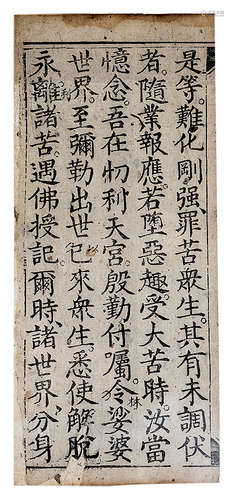 是等難化剛强罪苦衆生其有未調伏
者隨業報應若墮惡趣受大苦時汝當
憶念吾在忉利天宮殷勤付囑令娑婆
世界至彌勒出世已來衆生悉使解脫
永離諸苦遇佛授記爾時諸世界分身